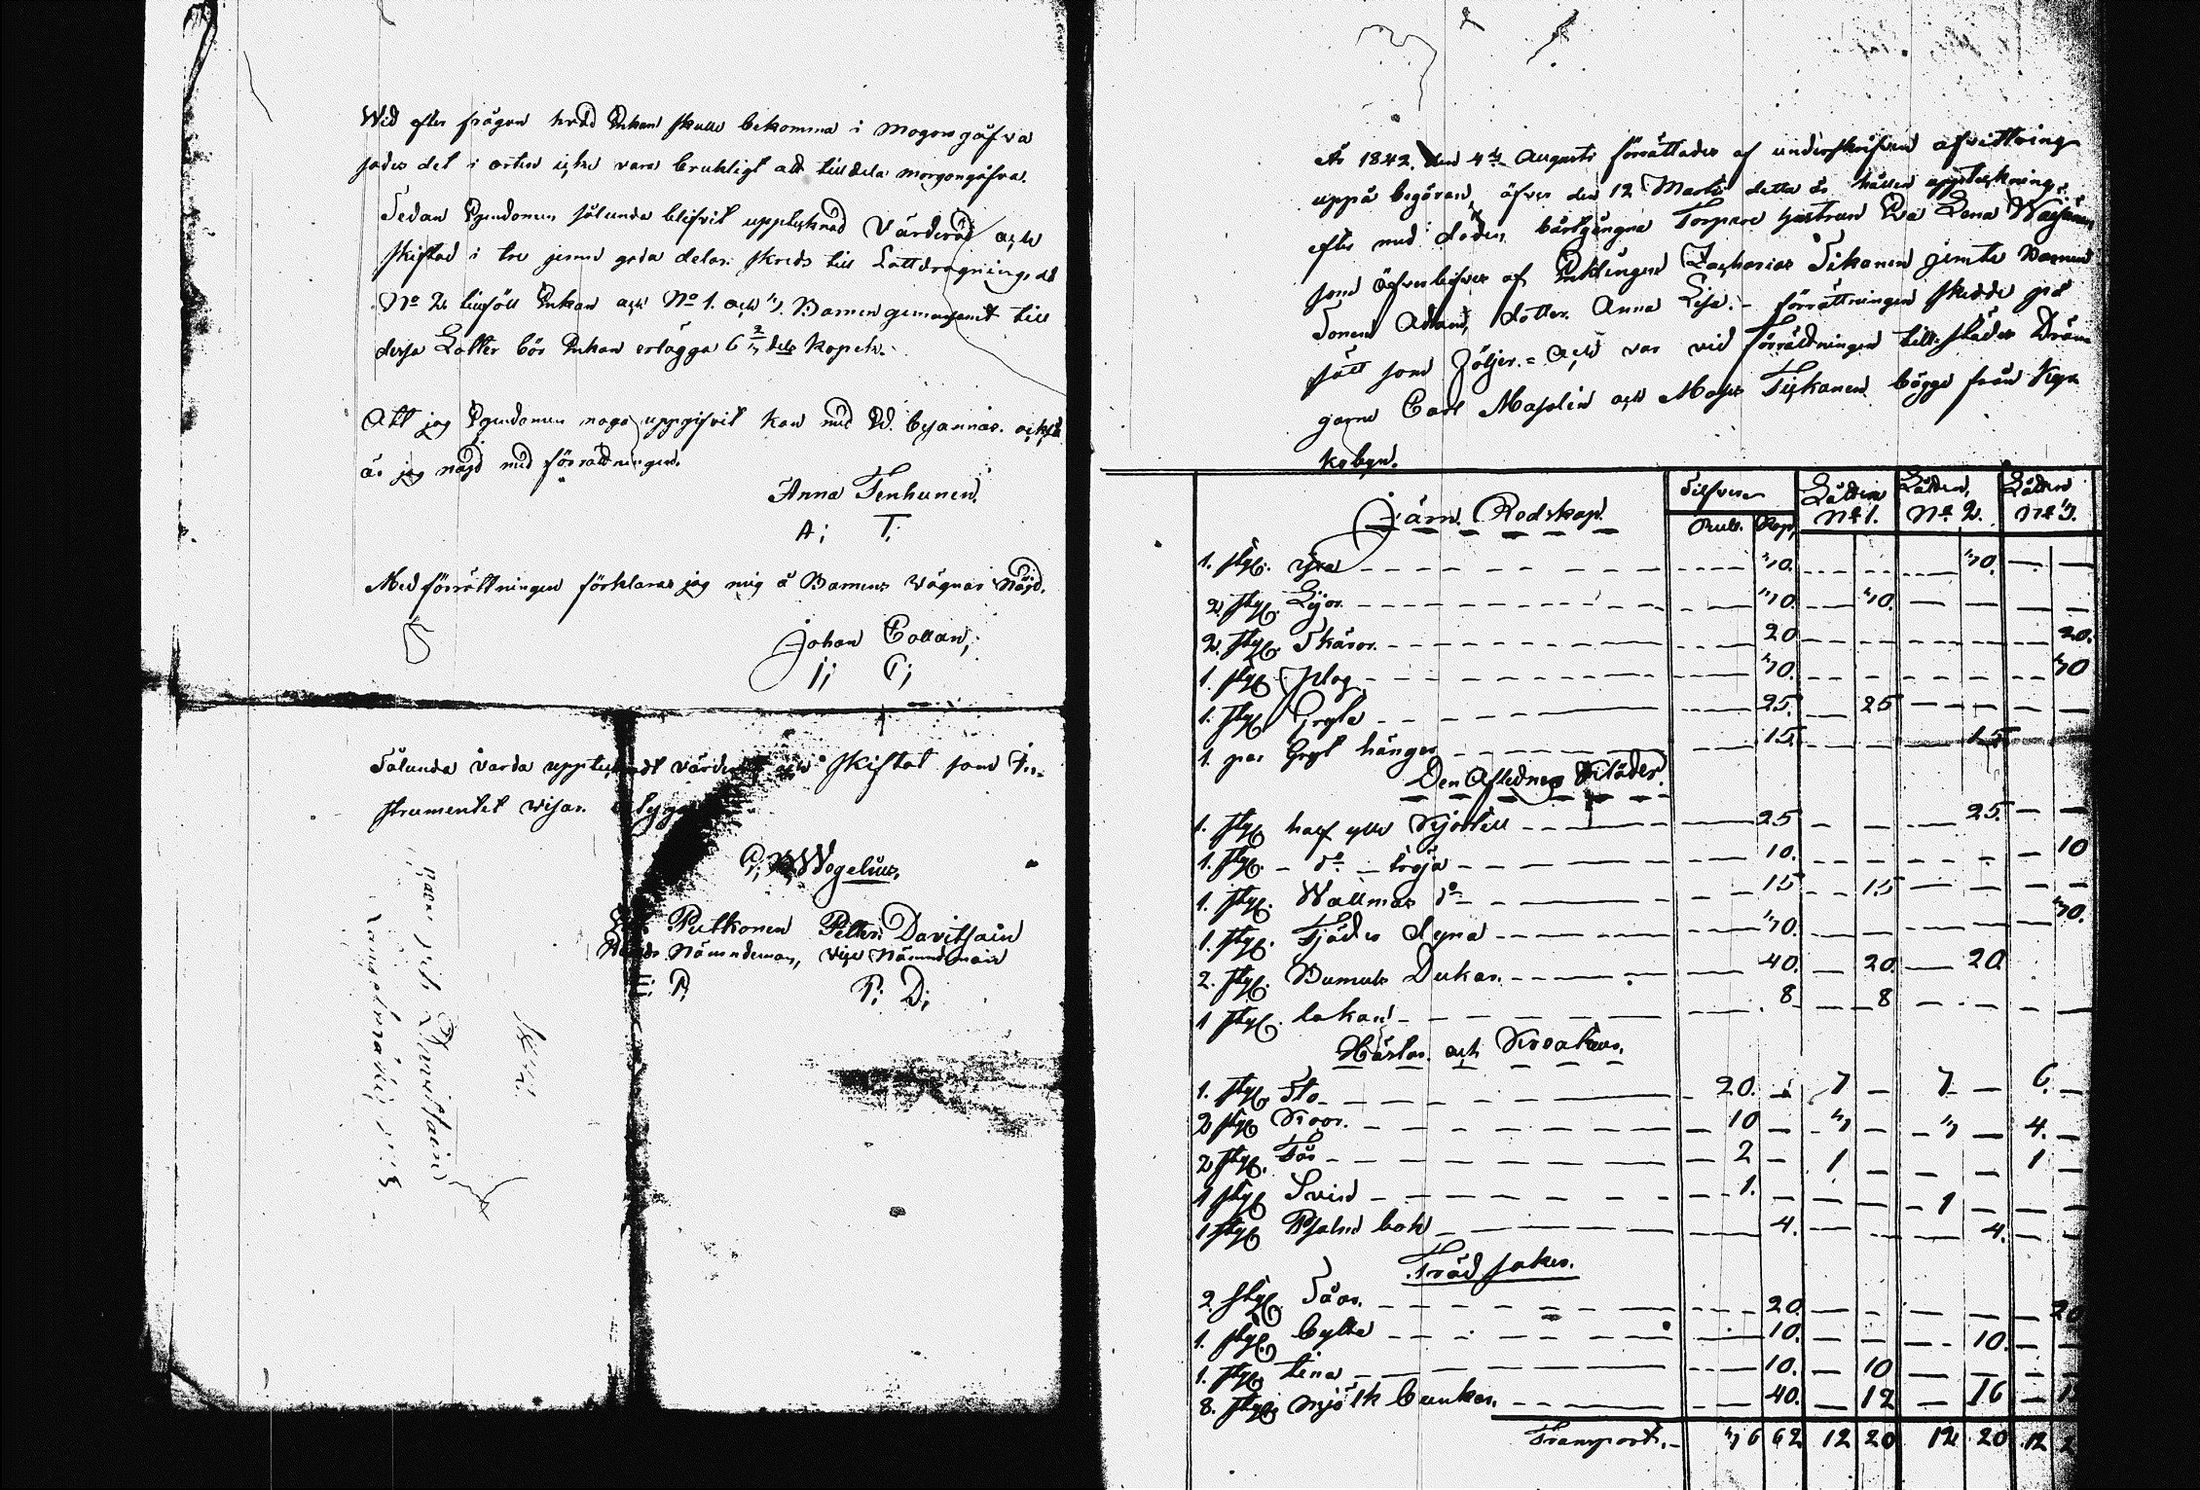 Wid efter frågan hvad Enkan skulle bekomma i morgongåfva
sades det i orten icke vara brukligt att tilldela morgongåfva.
Sedan Egendomen sålunda blifvit upptecknad Värderad och
skiftad i tre jemngoda delar skreds till Lottdragning, då
No 2 tillföll Enkan och No 1. och 3. Barnen gemensamt till
dessa Lotter bör Enkan erlägga 6 2/3 dels Kopek.
Att jag Egendomen noga uppgifvit kan med Ed besannas. också
är jag nöjd med förrättningen.
Anna Tenhunen.
A; T;
Med förrättningen förklarar jag mig å Barnens Wägnar Nöjd.
Johan Collan;
J; C;
Sålunda varda upptecknadt värderat och Skiftat som In-
strumentet visar.
Wegelius.
Putkonen Petter Davitsain
Nämndeman, vice Nämndeman
P; P; D;
År 1842. den 4de Augusti förrättades af underskrifven afvittring
uppå begäran, öfver den 12 Martii detta år hållen uppteckning,
efter med döden bårtgångna Torpare hustrun Eva Lena
som öfverlefves af Enklingen Zacharias Tikanen jemte Barnen
Sonen Adam, dotter Anna Lisa. förrättningen skedde på
sätt som följer. Och var vid Förrättningen tillstädes
garne Carl Masalin och Mats Tickanen bägge från
kobyn.
Järn Redskap. Silfver Lotten Lotten Lotten
Rub. Kop. No 1. No 2. No 3.
1. styck yxa 30. 30.
2 styck Lijor 30. 30.
2. styck Skäror 20 20.
1. styck Plog 30. 30
1. styck Gryta 25. 25
1. par Gryt hänger 15. 15
Den Aflednes Kläder.
1. styck half ylle Kjortell 25 25.
1. styck do tröja 10. 10
1. styck Wallmar do 15 15
1. styck Fjäder dyna 30. 30.
2. styck Bumuls Dukar 40. 20 20
1 styck lakan 8 8
Hästar och Kreatur.
1. styck Sto 20. 7 7 6.
2 styck Koor. 10 3 3 4.
2 styck Får 2 1 1
1 styck Svin 1. 1
1 styck Psalm bok 4. 4.
Träd saker.
2 styck Såar. 20. 20
1. styck bytta 10. 10.
1. styck tina 10. 10
8. styck mjölk bunkar. 40. 12 16
Transport. 36 62 12 20 12 20 12